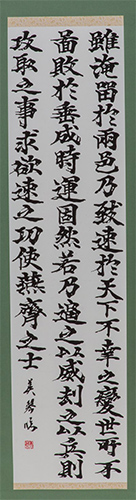 雖淹留於兩邑乃致速於天下不幸之變世所不
啚敗於垂成時運固然若乃逼之以威劫之以兵則
攻取之事求欲速之功使燕齊之士